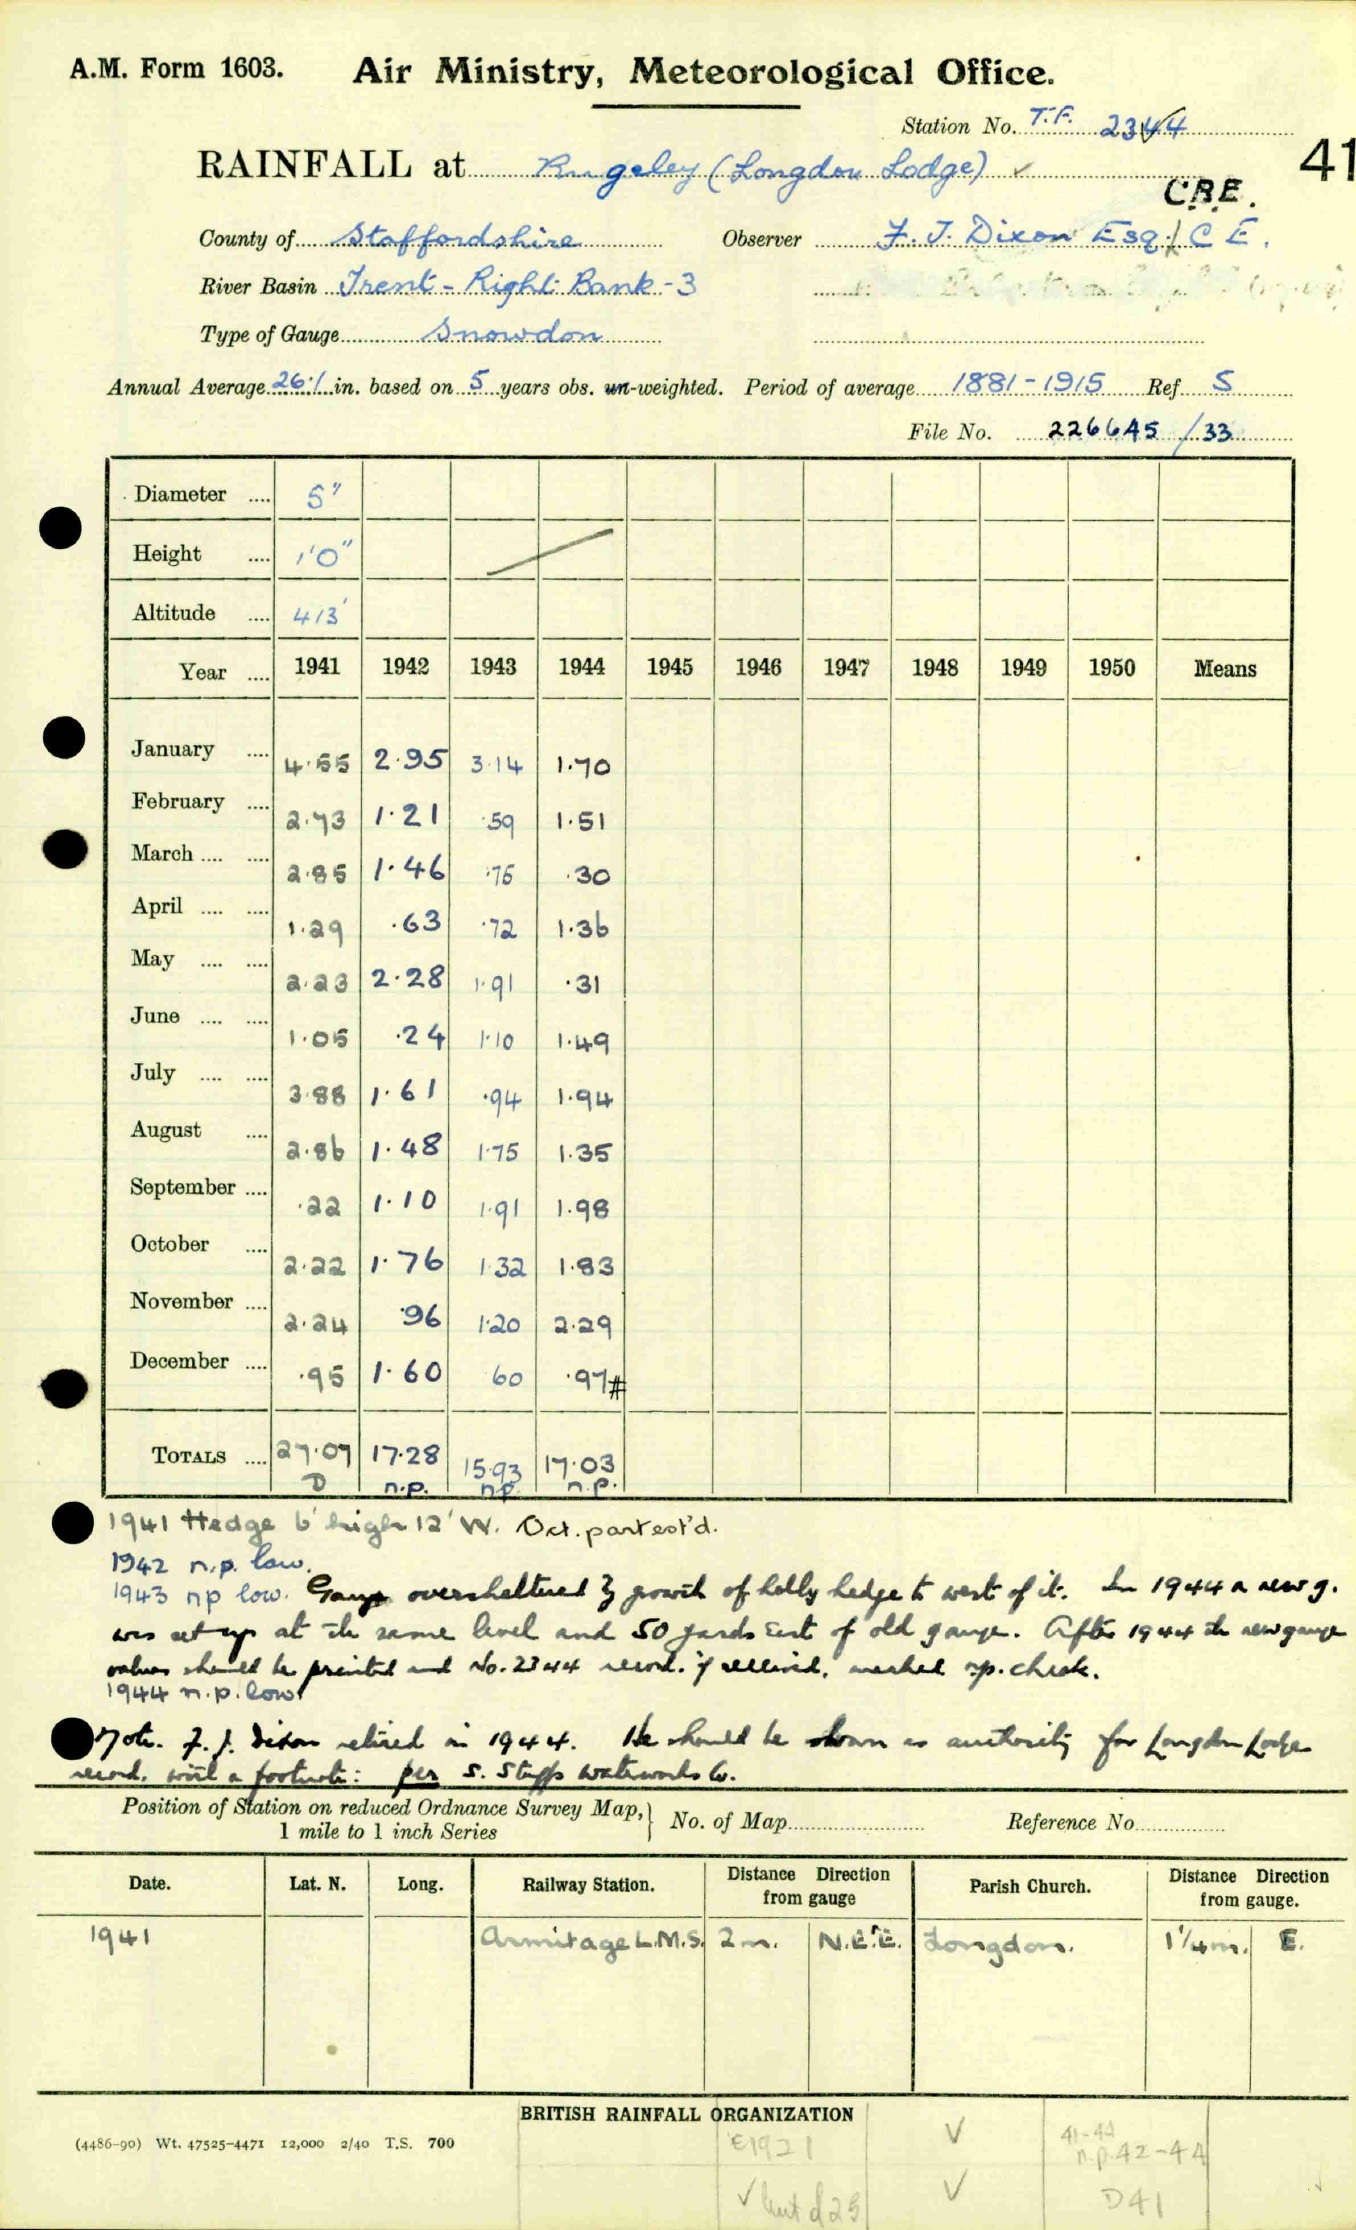 A.M. Form 1603. Air Ministry, Meteorological Office.
Station No. T.F. 2344
41
RAINFALL at Rugeley (Longdon Lodge) ✓
C.B.E.
County of Staffordshire Observer F. J. Dixon Esq. C E.
River Basin Trent - Right Bank - 3
Type of Gauge Snowdon
Annual Average 26.1 in. based on 5 years obs. un-weighted. Period of average 1881-1915 Ref S
File No. 226645 /33
Diameter .... 5"
Height .... 1'0"
Altitude .... 413'
Year .... 1941 1942 1943 1944 1945 1946 1947 1948 1949 1950 Means
January .... 4.55 2.95 3.14 1.70
February .... 2.73 1.21 .59 1.51
March .... .... 2.85 1.46 .75 .30
April .... .... 1.29 .63 .72 1.36
May .... .... 2.23 2.28 1.91 .31
June .... .... 1.05 .24 1.10 1.49
July .... .... 3.88 1.61 .94 1.94
August .... 2.86 1.48 1.75 1.35
September .... .22 1.10 1.91 1.98
October .... 2.22 1.76 1.32 1.83
November .... 2.24 .96 1.20 2.29
December .... .95 1.60 60 .97#
TOTALS .... 27.07 17.28 15.93 17.03
D n.p. np. n.p.
1941 Hedge 6' high 12' W. Oct. part est'd.
1942 n.p. low.
1943 np low. Gauge oversheltered by growth of holly hedge to west of it. In 1944 a new g.
was set up at the same level and 50 yards East of old gauge. After 1944 the new gauge
values should be printed and No. 2344 record, if received, marked n.p. check.
1944 n.p. low
Note. F. J. Dixon retired in 1944. He should be shown as authority for Longdon Lodge
record, with a footnote: per S. Staffs Waterworks Co.
Position of Station on reduced Ordnance Survey Map,} No. of Map Reference No
1 mile to 1 inch Series
Date. Lat. N. Long. Railway Station. Distance Direction from gauge Parish Church. Distance Direction from gauge.
1941 Armitage L.M.S. 2 m. N.E.'E. Longdon. 1¼ m. E.
BRITISH RAINFALL ORGANIZATION
(4486-90) Wt. 47525-4471 12,000 2/40 T.S. 700
E1921 ✓ 41-44
n.p. 42-44
✓ ✓ D41